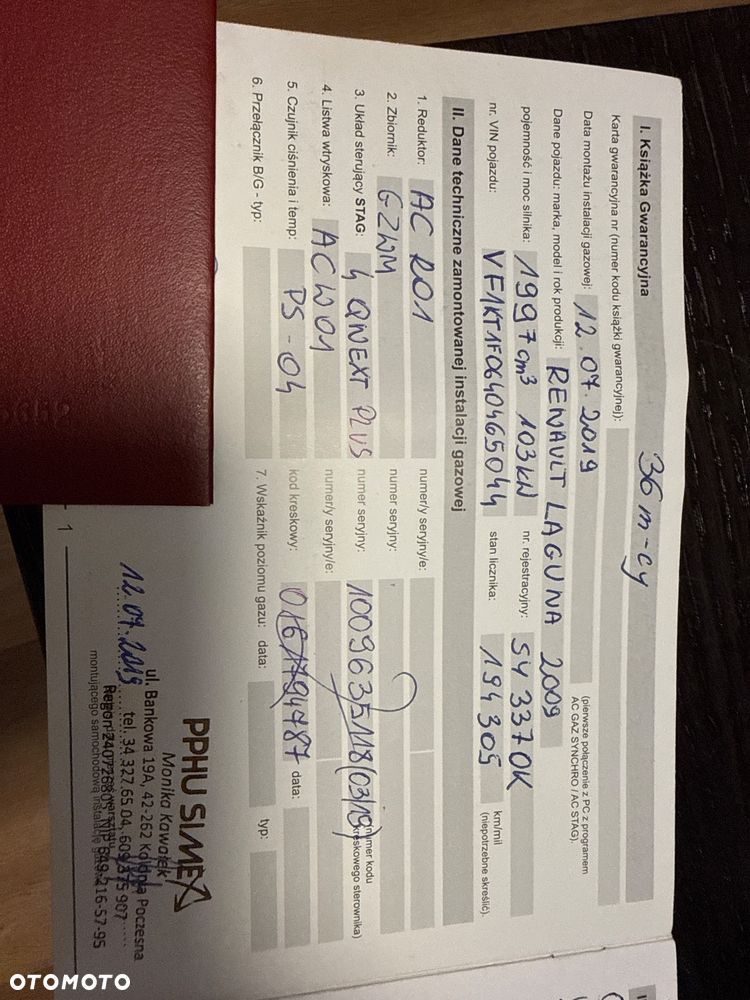 I. Książka Gwarancyjna
36 m-cy
Karta gwarancyjna nr (numer kodu książki gwarancyjnej):
(pierwsze połączenie z PC z programem
AC GAZ SYNCHRO / AC STAG).
Data montażu instalacji gazowej: 12.07.2019
Dane pojazdu: marka, model i rok produkcji: RENAULT LAGUNA 2009
pojemność i moc silnika: 1997cm³ 103kW nr. rejestracyjny: SY 3370K
nr. VIN pojazdu: VF1KT1F0640465044 stan licznika: 194 305 km/mil
(niepotrzebne skreślić).
II. Dane techniczne zamontowanej instalacji gazowej
1. Reduktor: AC R01 numer/y seryjny/e:
2. Zbiornik: GZWM numer seryjny:
3. Układ sterujący STAG: 4 QNEXT PLUS numer seryjny: 1009635118(03/19) (numer kodu
kreskowego sterownika)
4. Listwa wtryskowa: ACW01 numer/y seryjny/e:
5. Czujnik ciśnienia i temp: PS-04 kod kreskowy: 016 1794787 data:
6. Przełącznik B/G - typ: 7. Wskaźnik poziomu gazu: data: typ:
PPHU SIMEX
Monika Kawałek
ul. Bankowa 19A, 42-262 Kolonia Poczesna
12.07.2019 tel. 34 327 65 04, 609 375 907
Regon 240726803, NIP 949-216-57-95
montującego samochodową instalację
1
OTOMOTO